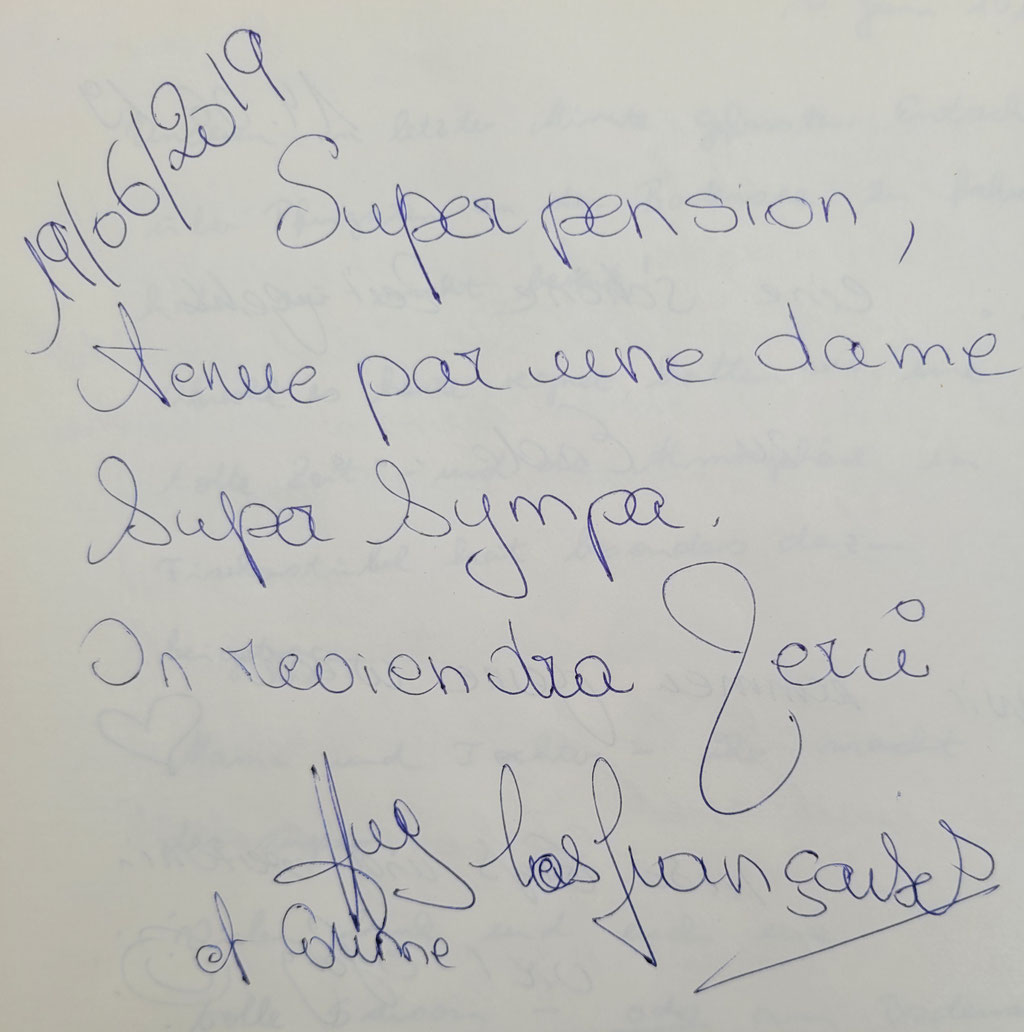 19/06/2019
Super pension,
tenue par une dame
super sympa.
On reviendra Merci
Les françaises
et Corinne